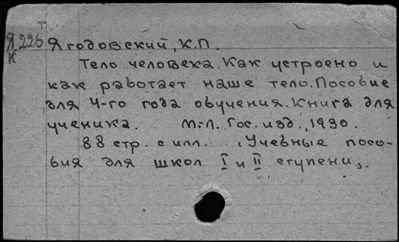 Я 226 Ягодовский, К.П.
К
Тело человека. Как устроено и
как работает наше тело. Пособие
для 4-го года обучения. Книга для
ученика. М.-Л. Гос. изд., 1930.
88 стр. с илл. (Учебные посо-
бия для школ I и II ступени).